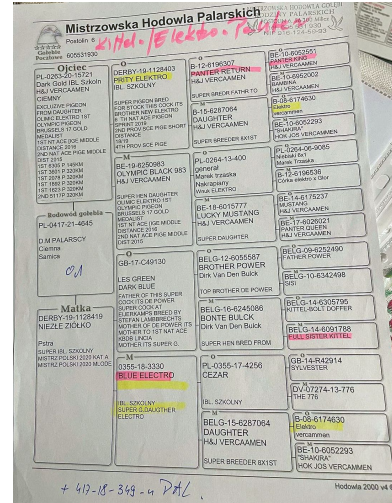 Mistrzowska Hodowla Palarskich
Postolin 6
605531930
Kittel./Elektro.Panter
Ojciec
PL-0263-20-15721
Dark Gold IBL Szkoln
H&J VERCAAMEN
CIEMNY
EXLUZIVE PIGEON
FROM DAUGHTER
OLIMIC ELEKTRO 1ST
OLYMPIC PIGEON
BRUSSELS 17 GOLD
MEDALIST
1ST NT ACE IDGE MIDDLE
DISTANCE 2016
2ND NAT ACE PIGE MIDDLE
DIST 2015
Rodowód gołębia
PL-0417-21-4645
D.M PALARSCY
Ciemna
Samica
0,1
Matka
DERBY-19-1128419
NIEZŁE ZIÓŁKO
Pstra
SUPER IBL. SZKOLNY
MISTRZ POLSKI 2020 KAT A
MISTRZ POLSKI 2020 MLODE
O
DERBY-19-1128403
PRITY ELEKTRO
IBL. SZKOLNY
SUPER PIGEON BRED
FOR STOCK THIS COCK ITS
BROTHER PRITY ELEKTRO
1 TH NAT ACE PIGEON
SPRINT 2019
2ND PROV SCE PIGE SHORT
DISTANCE
18/19
6TH PROV SCE PIGE
M
BE-19-6250983
OLYMPIC BLACK 983
H&J VERCAAMEN
SUPER HEN DAUGHTER
OLIMIC ELEKTRO 1ST
OLYMPIC PIGEON
BRUSSELS 17 GOLD
MEDALIST
1ST NT ACE IDGE MIDDLE
DISTANCE 2016
2ND NAT ACE PIGE MIDDLE
DIST 2015
O
GB-17-C49130
LES GREEN
DARK BLUE
FATHER OF THIS SUPER
COOK ITS DE POWER
SUPER COOK AT
EIJERKAMPS BREED BY
STEFAN LAMBRECHTS
MOTHER OF DE POWER ITS
MOTHER TO 1ST NAT ACE
KBDB LINCIA
MOTHER ITS SUPER G.
M
0355-18-3330
BLUE ELECTRO
IBL. SZKOLNY
SUPER G.DAUGTHER
ELECTRO
O
B-12-6196307
PANTER RETURN
H&J VERCAAMEN
SUPER BREDR FATHR TO
M
B-15-6287064
DAUGHTER
H&J VERCAAMEN
SUPER BREEDER 8X1ST
O
PL-0264-13-400
general
Marek trzaska
Nakrapiany
Wnuk ELEKTRO
M
BE-18-6015777
LUCKY MUSTANG
H&J VERCAAMEN
SUPER DAUGHTER
O
BELG-12-6055587
BROTHER POWER
Dirk Van Den Bulck
TOP BROTHER DE POWER
M
BELG-16-6245086
BONTE BULCK
Dirk Van Den Bulck
SUPER HEN BRED FROM
O
PL-0355-17-4256
CEZAR
IBL. SZKOLNY
M
BELG-15-6287064
DAUGHTER
H&J VERCAAMEN
SUPER BREEDER 8X1ST
BE-10-6052551
PANTER KING
H&J VERCAAMEN
BE-10-6952002
BAMBINA
H&J VERCAAMEN
B-08-6174630
Elektro
vercammen
BE-10-6052293
"SHAKIRA"
HOK JOS VERCAMMEN
PL-2264-06-9085
Niebieski 8x1
Marek Trzaska
B-12-6196536
Córka elektro x Glor
BE-14-6175237
MUSTANG
H&J VERCAAMEN
BE-17-6026021
PANTER QUEEN
H&J VERCAAMEN
BELG-09-6252490
FATHER POWER
BELG-10-6342498
SISI
BELG-14-6305795
KITTEL-BOLT DOFFER
BELG-14-6091788
FULL SISTER KITTEL
GB-14-R42914
SYLVESTER
DV-07274-13-776
THE 776
B-08-6174630
Elektro
vercammen
BE-10-6052293
"SHAKIRA"
HOK JOS VERCAMMEN
+ 417-18-349-u DAL.
Hodowla 2000 v4